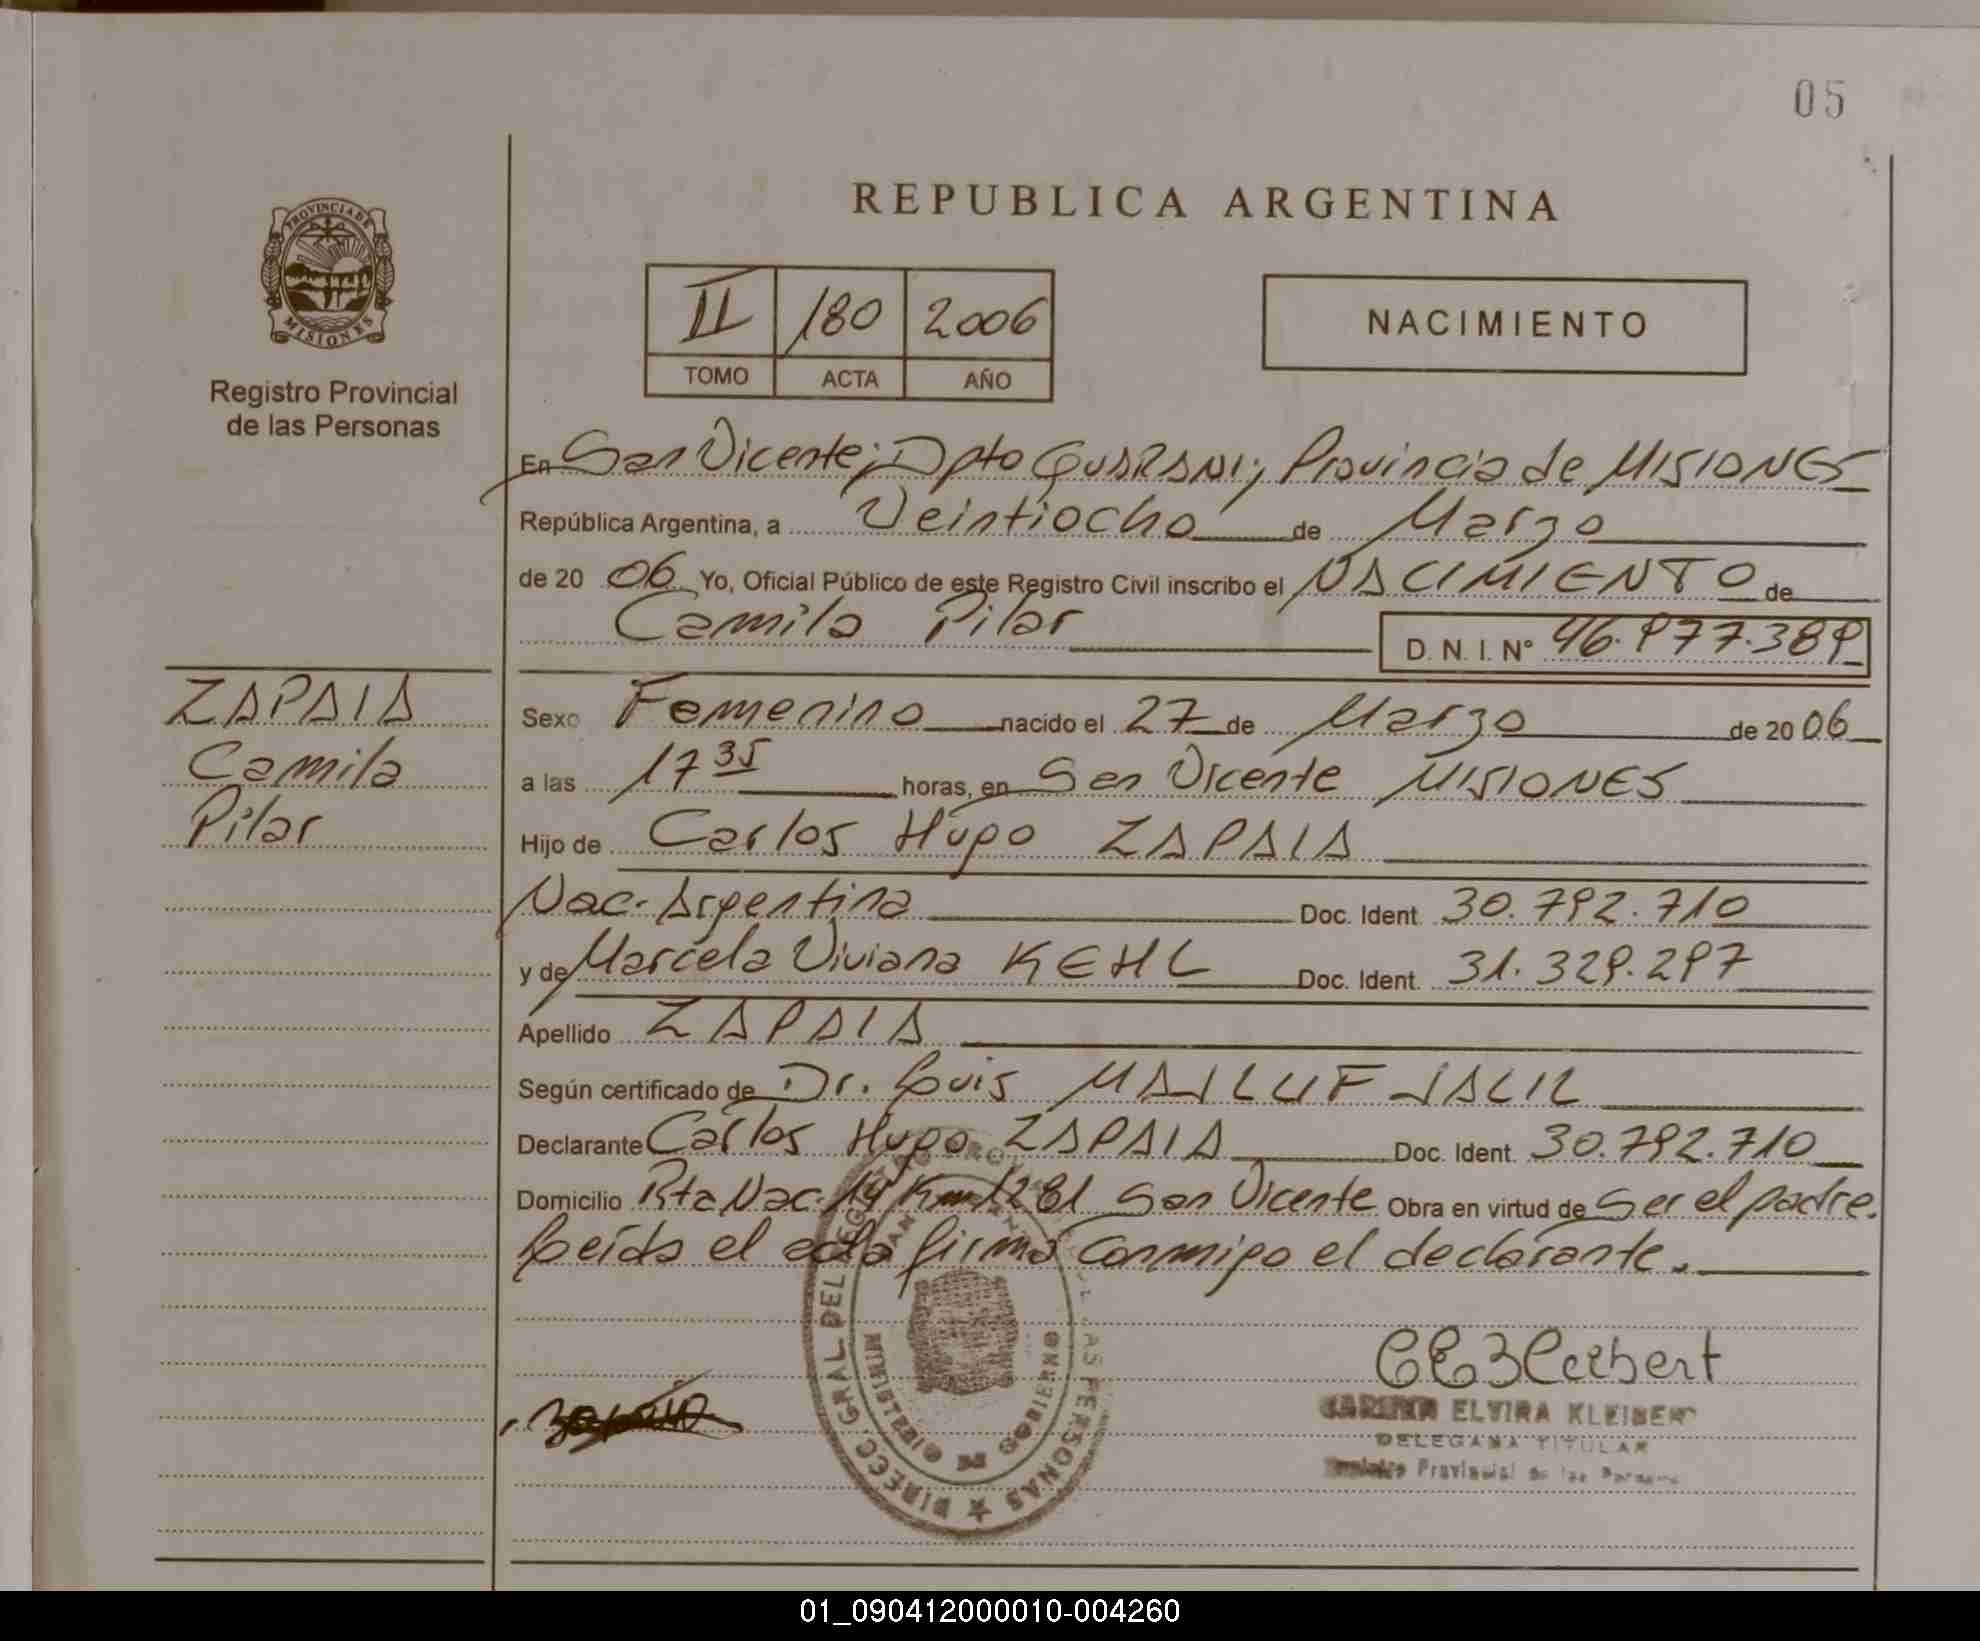 05
REPUBLICA ARGENTINA
PROVINCIA DE
MISIONES
Registro Provincial
de las Personas
II 180 2006
TOMO ACTA AÑO
NACIMIENTO
En San Vicente; Dpto GUARANI; Provincia de MISIONES
República Argentina, a Veintiocho de Marzo
de 20 06 Yo, Oficial Público de este Registro Civil inscribo el NACIMIENTO de
Camila Pilar D. N. I. N° 46.977.389
ZAPAIA
Camila
Pilar
Sexo Femenino nacido el 27 de Marzo de 20 06
a las 17 35 horas, en San Vicente MISIONES
Hijo de Carlos Hugo ZAPAIA
Nac. Argentina Doc. Ident. 30.792.710
y de Marcela Viviana KEHL Doc. Ident. 31.329.297
Apellido ZAPAIA
Según certificado de Dr. Luis MAILUF JALIL
Declarante Carlos Hugo ZAPAIA Doc. Ident. 30.792.710
Domicilio Rta Nac. 14 Km 1281 San Vicente Obra en virtud de Ser el padre.
Leída el acta firma conmigo el declarante.
DIRECC. GRAL. DEL REGISTRO PROVINCIAL DE LAS PERSONAS
MINISTERIO DE GOBIERNO
ELVIRA KLEIBERT
DELEGADA TITULAR
Registro Provincial de las Personas
01_090412000010-004260